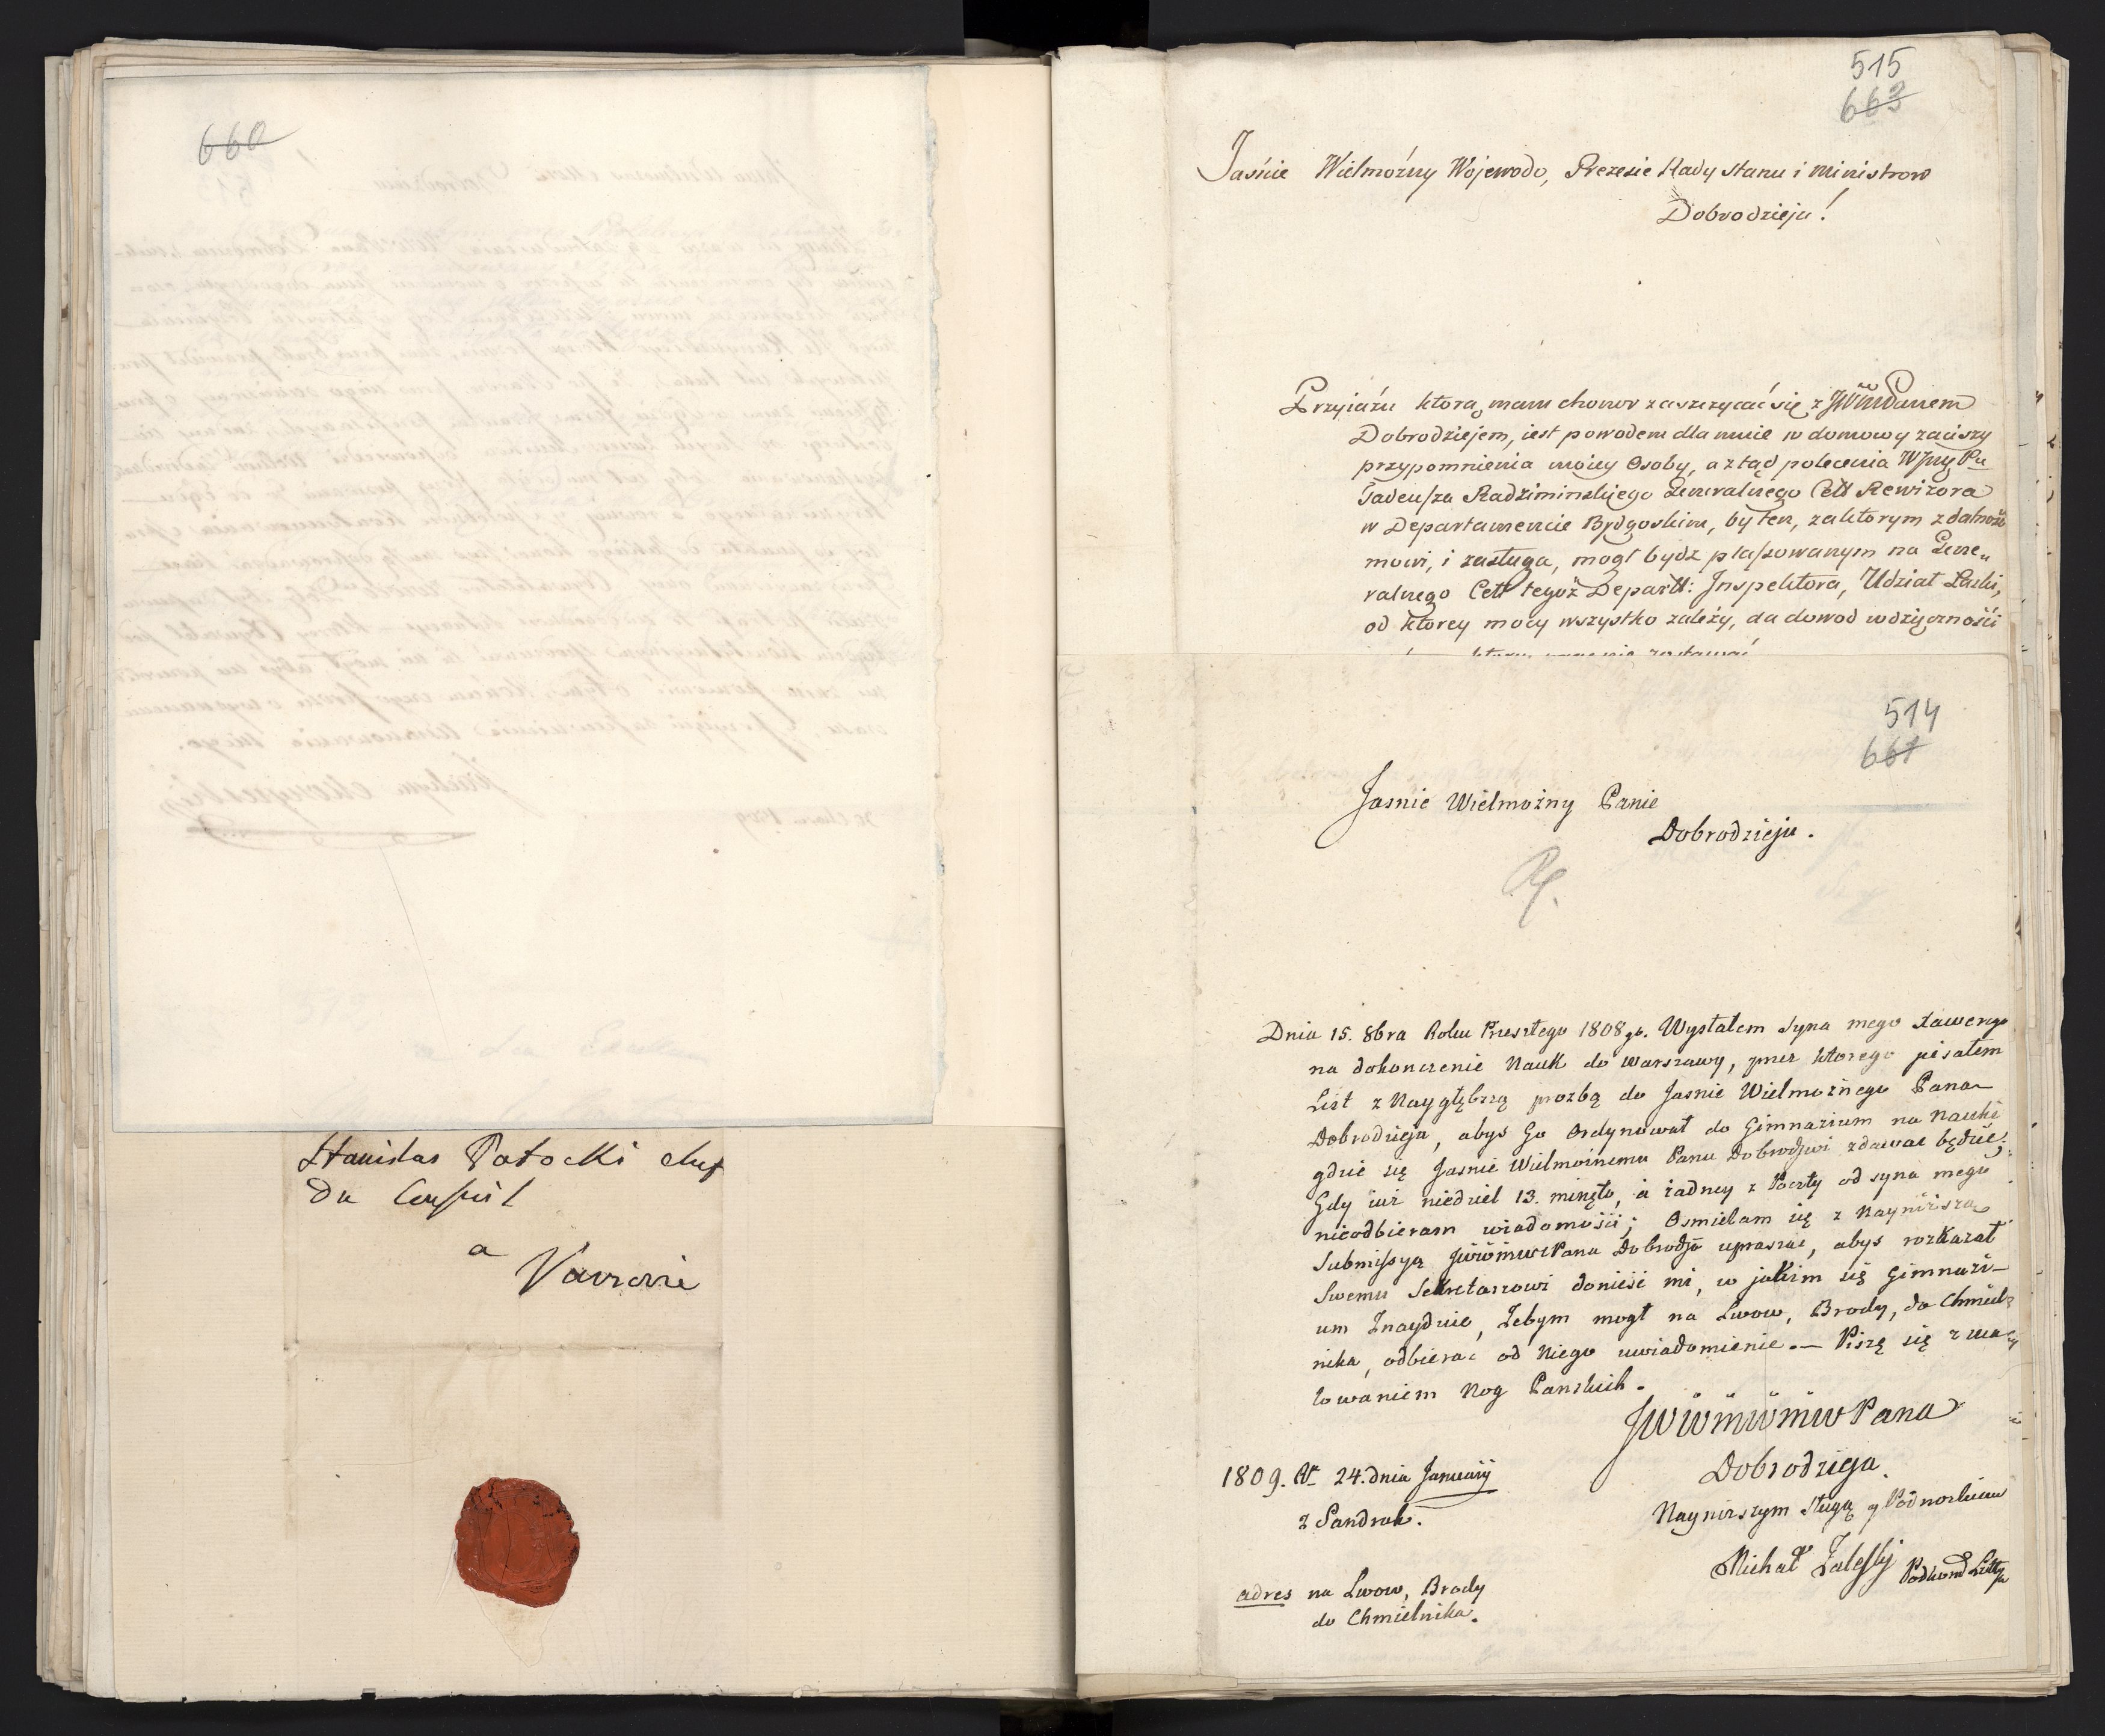 660
Stanislas Potocki chef
du Conseil
a
Varsovie
515
663
Jaśnie Wielmożny Wojewodo, Prezesie Rady Stanu i Ministrow
Dobrodzieju!
Przyiaźń ktorą mam chonor zaszczycać się z JWWPanem
Dobrodziejem, iest powodem dla mnie w domowy zaciszy
przypomnienia moiey Osoby, a ztąd polecenia
Tadeusza Radziminskiego Generalnego Cell Rewizora
w Departamencie Bydgoskim, by ten, za ktorym zdatność
mowi, i zasługa, mogł bydz plassowanym na Gene„
ralnego Cell tegoż Departt: Inspektora, Udział Łaski,
od ktorey mocy wszystko zależy, da dowod wdzięczności
514
661
Jasnie Wielmożny Panie
Dobrodzieju.
Dnia 15. 8bra Roku Przeszłego 1808go. Wysłałem Syna mego Xawerego
na dokonczenie Nauk do Warszawy, przez ktorego pisałem
List z Naygłębszą prozbą do Jasnie Wielmożnego Pana
Dobrodzieja, abys Go Ordynował do Gimnazium na Nauki
gdzie się Jasnie Wielmożnemu Panu Dobrodziwi zdawac będzie;
Gdy iuż niedziel 13. minęło, a żadney z Poczty od syna mego
nieodbieram wiadomości; Osmielam się z Nayniższą
Submissyą Pana Dobrodzja upraszac, abys rozkazał
Swemu Sekretarzowi doniesć mi, w jakim się Gimnazi-
um Znayduie, Żebym mogł na Lwow, Brody, do Chmiel-
nika, odbierac od Niego uwiadomienie.— Piszę się z uca-
łowaniem Nog Panskich.
JWWMWMWPana
Dobrodzieja
1809. Rk 24. dnia Januarij
z Sandrak.
Nayniższym sługą y Podnoszkiem
Michał Zalessky
adres na Lwow, Brody
do Chmielnika.